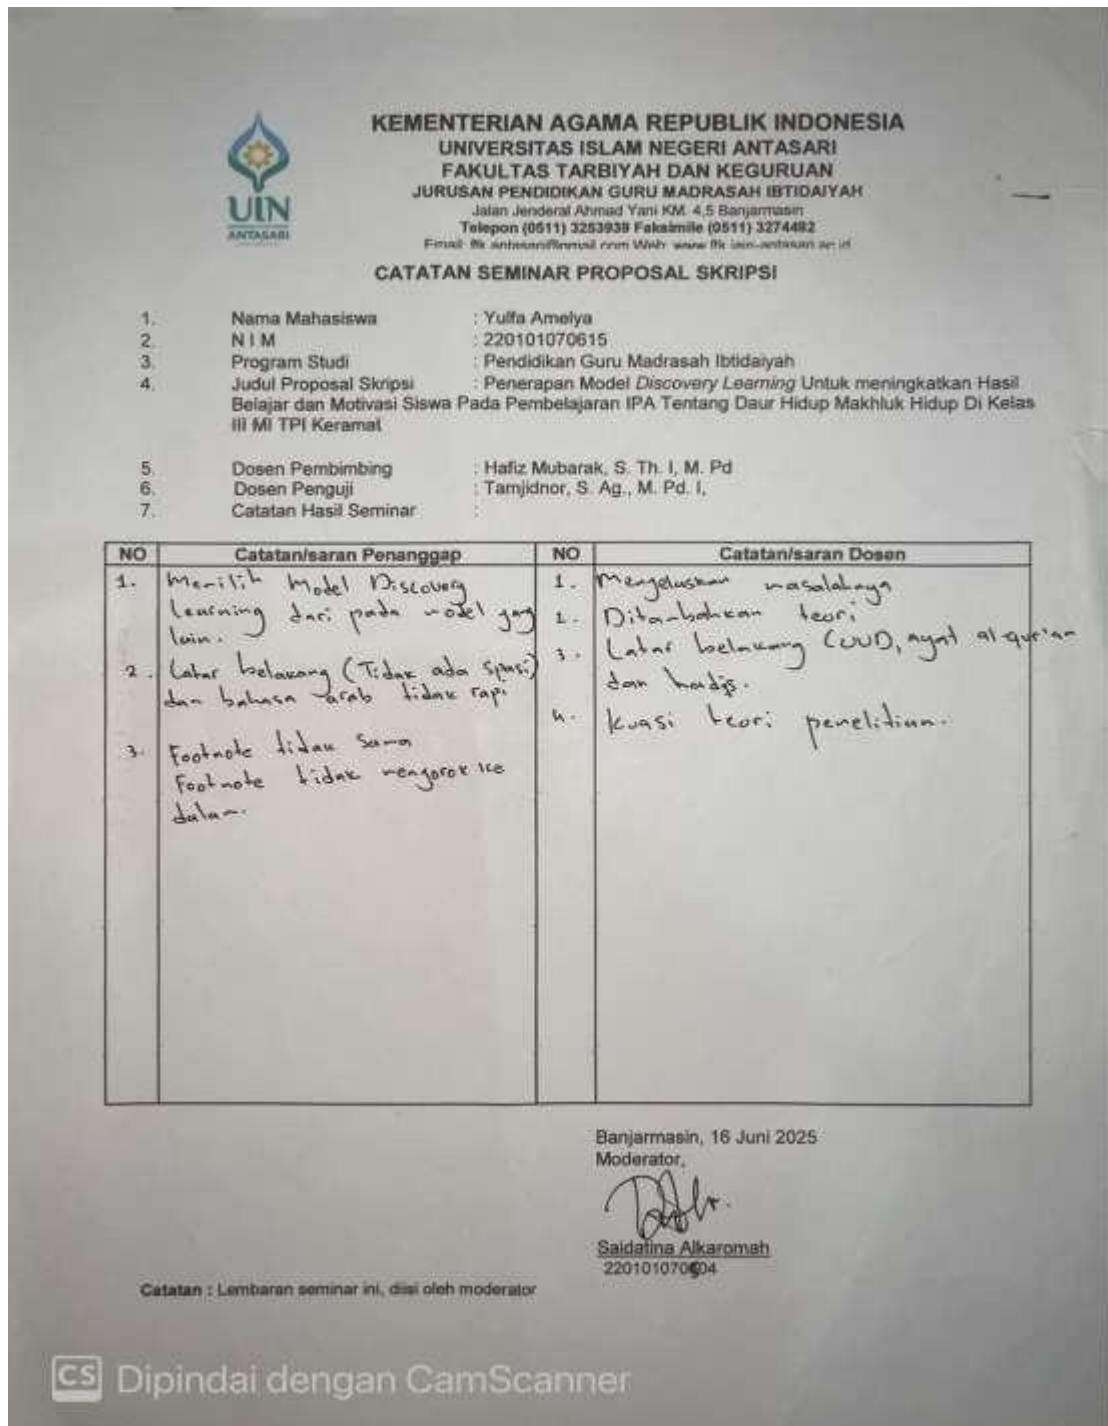 KEMENTERIAN AGAMA REPUBLIK INDONESIA
UNIVERSITAS ISLAM NEGERI ANTASARI
FAKULTAS TARBIYAH DAN KEGURUAN
JURUSAN PENDIDIKAN GURU MADRASAH IBTIDAIYAH
Jalan Jenderal Ahmad Yani KM. 4,5 Banjarmasin
Telepon (0511) 3253939 Faksimile (0511) 3274492
UIN
ANTASARI
CATATAN SEMINAR PROPOSAL SKRIPSI
1. Nama Mahasiswa : Yulfa Amelya
2. N I M : 220101070615
3. Program Studi : Pendidikan Guru Madrasah Ibtidaiyah
4. Judul Proposal Skripsi : Penerapan Model Discovery Learning Untuk meningkatkan Hasil
Belajar dan Motivasi Siswa Pada Pembelajaran IPA Tentang Daur Hidup Makhluk Hidup Di Kelas
III MI TPI Keramat
5. Dosen Pembimbing : Hafiz Mubarak, S. Th. I, M. Pd
6. Dosen Penguji : Tamjidnor, S. Ag., M. Pd. I,
7. Catatan Hasil Seminar :
NO Catatan/saran Penanggap
1. Memilih Model Discovery
Learning dari pada model yang
lain.
2. Latar belakang (Tidak ada spasi)
dan bahasa arab tidak rapi
3. Footnote tidak sama
Footnote tidak mengorok ke
dalam.
NO Catatan/saran Dosen
1. Menjelaskan masalahnya
2. Ditambahkan teori
3. Latar belakang (UUD, ayat al-qur'an
dan hadis.
4. kuasi teori penelitian.
Banjarmasin, 16 Juni 2025
Moderator,
Saidatina Alkaromah
Catatan : Lembaran seminar ini, diisi oleh moderator
CS Dipindai dengan CamScanner